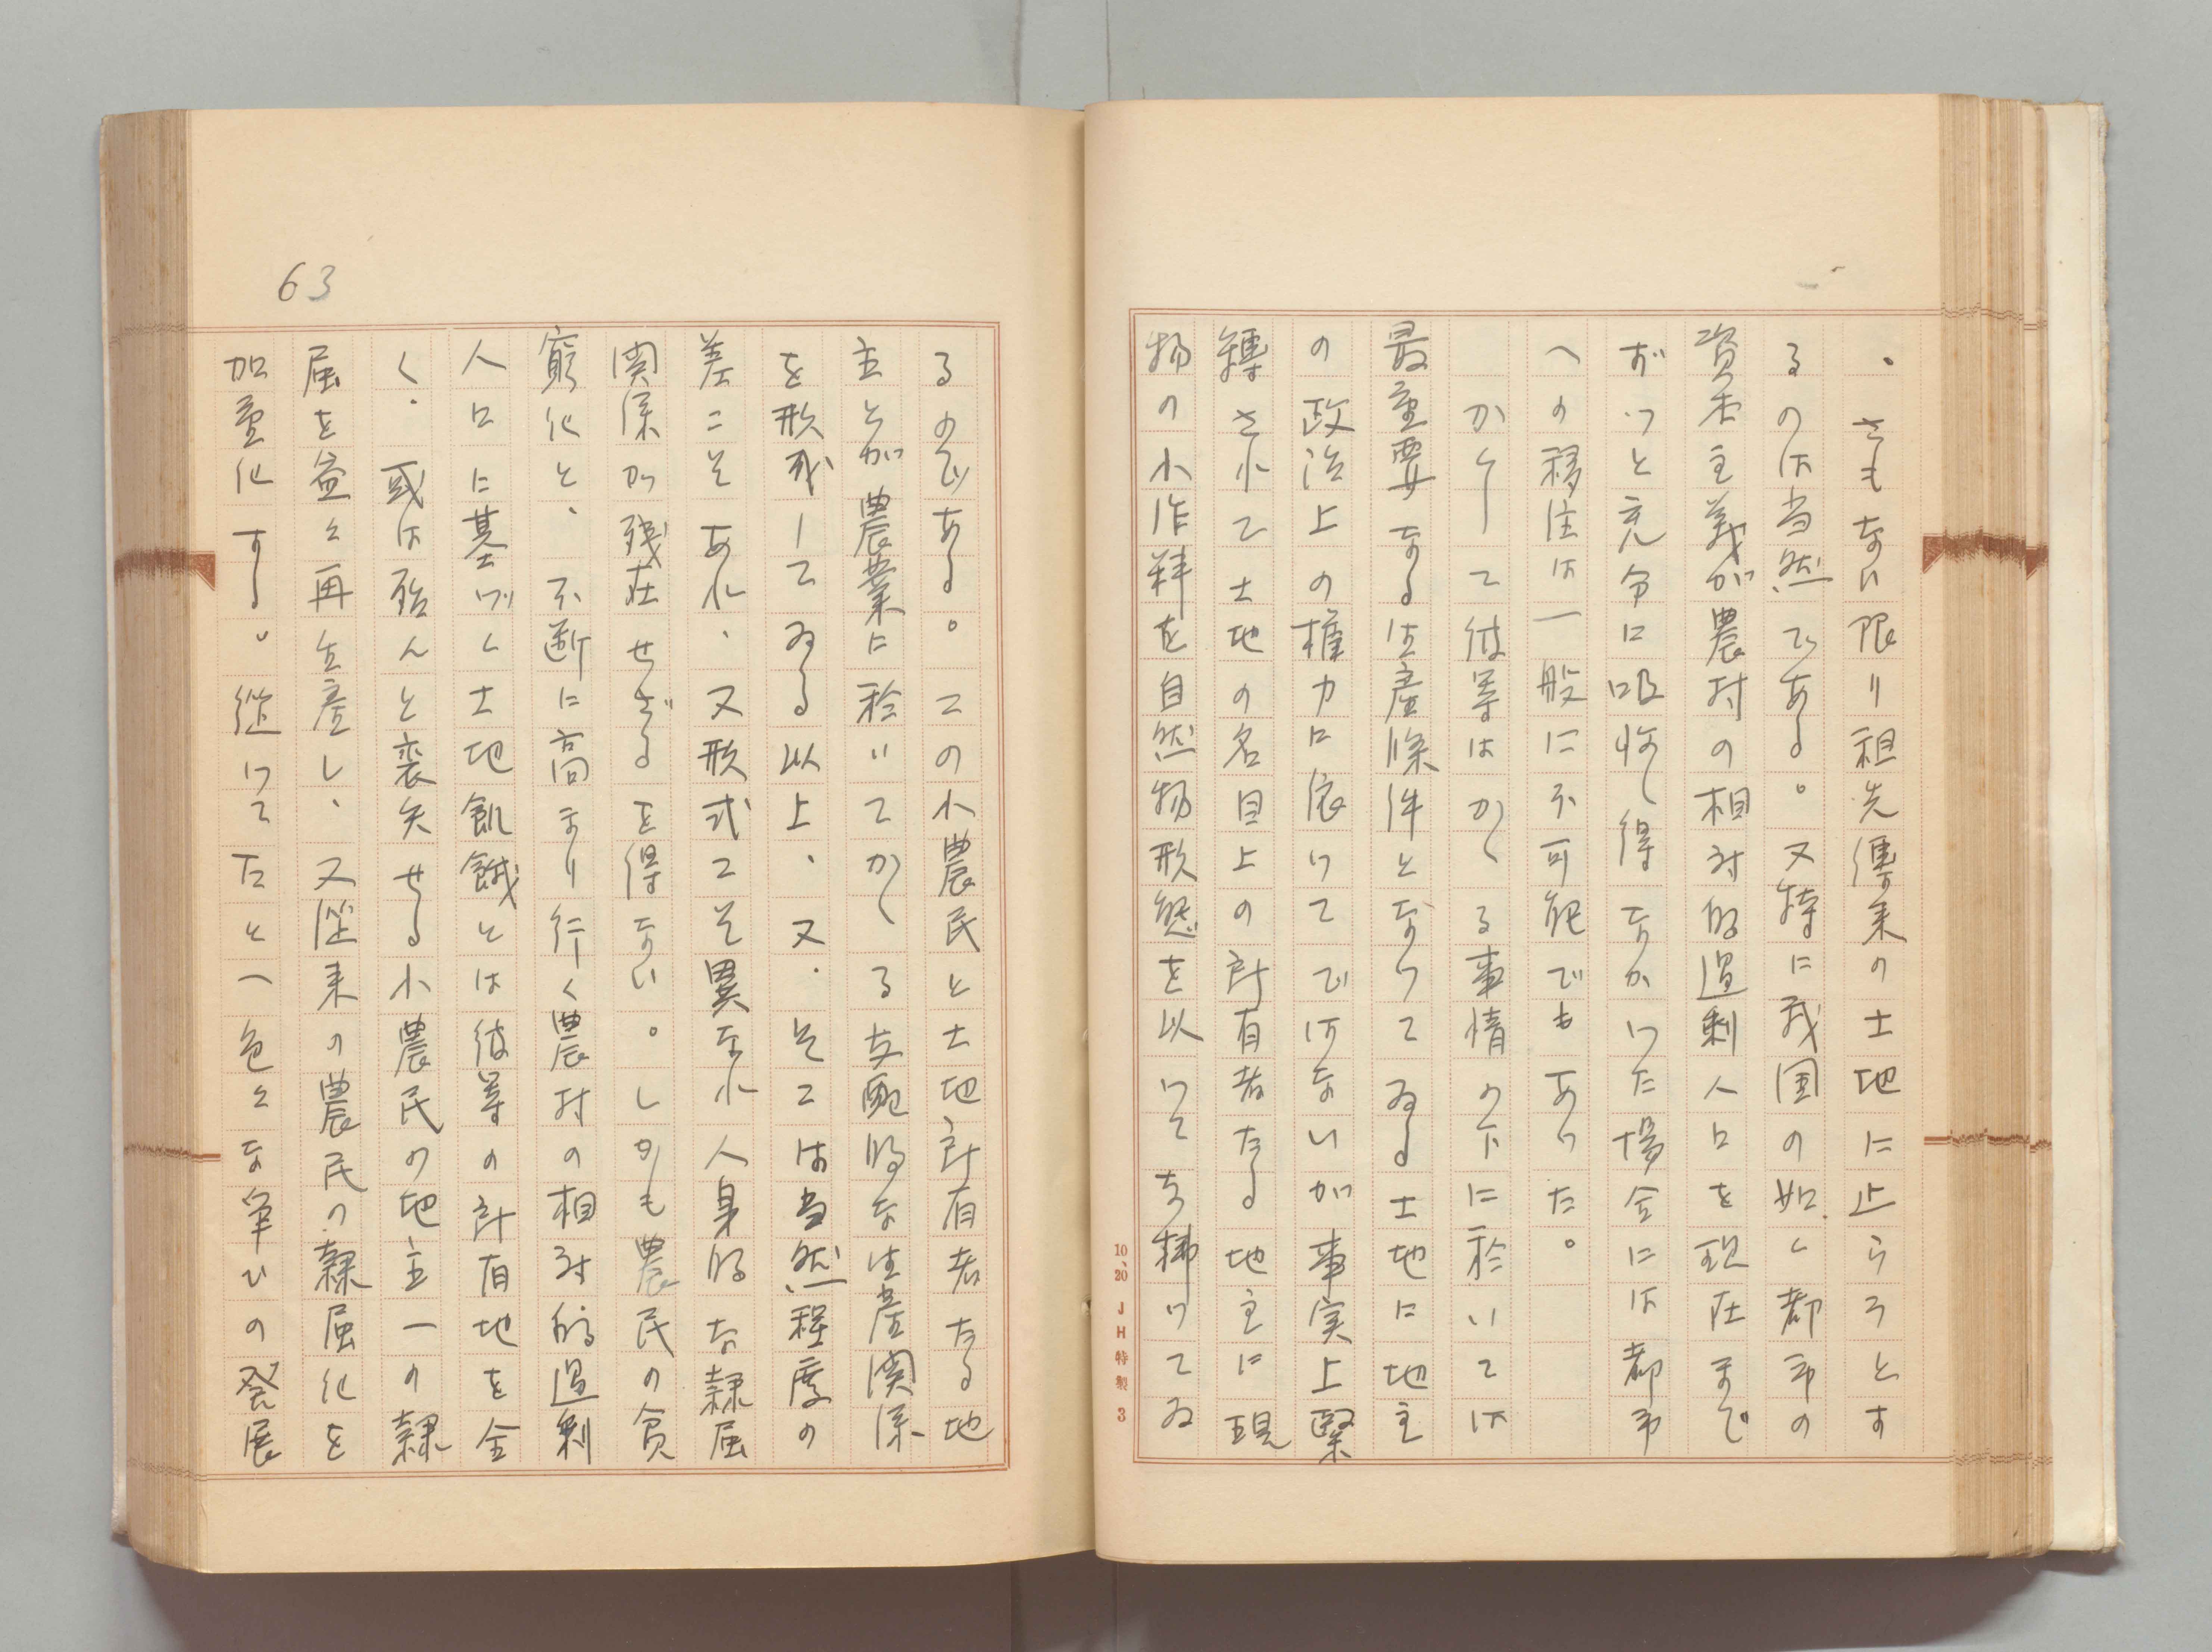 、さもない限り祖先傳来の土地に止らうとす
るのは当然である。又特に我国の如く都市の
資本主義が農村の相対的過剰人口を現在まで
ずっと充分に吸収し得なかった場合には都市
への移住は一般に不可能でもあった。
かくして彼等はかゝる事情の下に於いては
最重要なる生産條件となってゐる土地に地主
の政治上の権力に依ってではないが事実上緊
縛されて土地の名目上の所有者たる地主に現
物の小作料を自然物形態を以って支拂ってゐ
63
るのである。この小農民と土地所有者たる地
主とが農業に於いてかゝる支配的な生産関係
を形成してゐる以上、又、そこは当然程度の
差こそあれ、又形式こそ異なれ人身的な隷屈
関係が残在せざるを得ない。しかも農民の貧
窮化と、不断に高まり行く農村の相対的過剰
人口に基づく土地飢餓とは彼等の所有地を全
く、或は殆んと喪失せる小農民の地主への隷
屈を益々再生産し、又従来の農民の隷屈化を
加重化する。従ってたとへ色々な筆ひの発展
10、20 JH特製 3